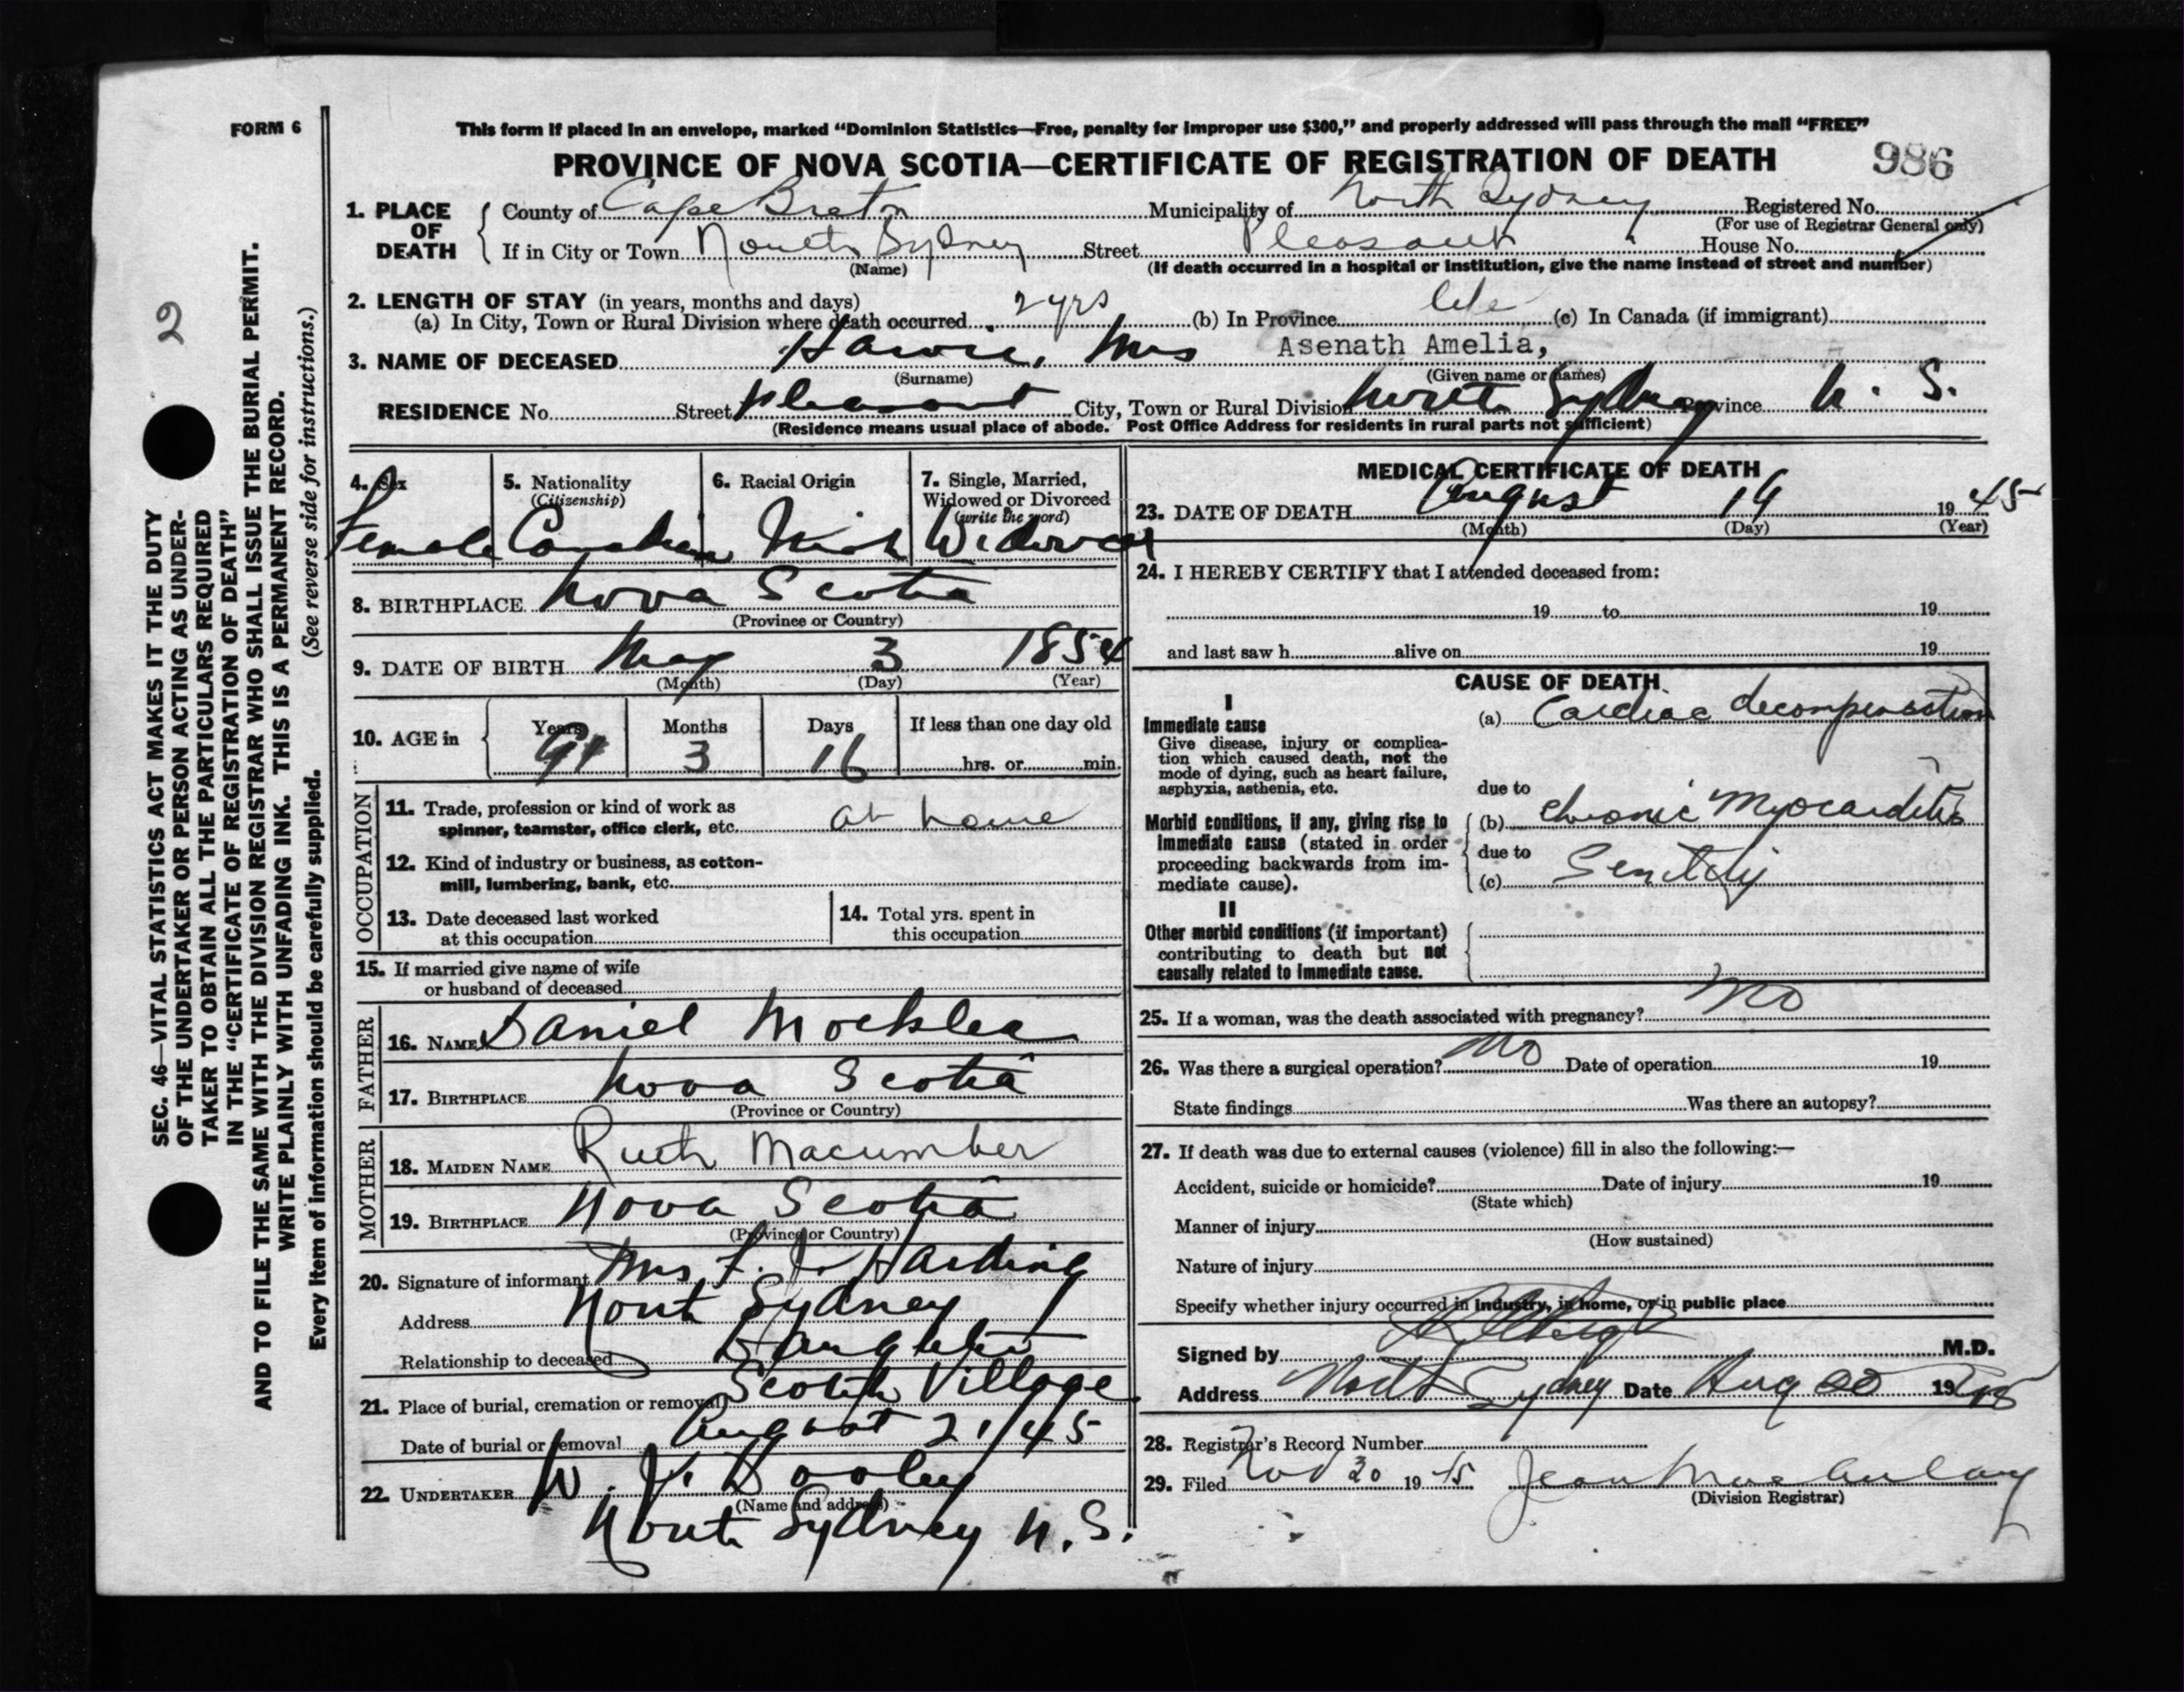 FORM 6
This form if placed in an envelope, marked "Dominion Statistics—Free, penalty for improper use $300," and properly addressed will pass through the mail "FREE"
PROVINCE OF NOVA SCOTIA—CERTIFICATE OF REGISTRATION OF DEATH 986
1. PLACE OF DEATH
County of Cape Breton Municipality of North Sydney Registered No.
(For use of Registrar General only)
If in City or Town North Sydney Street Pleasant House No.
(Name) (If death occurred in a hospital or institution, give the name instead of street and number)
2. LENGTH OF STAY (in years, months and days)
(a) In City, Town or Rural Division where death occurred 2 yrs (b) In Province life (c) In Canada (if immigrant)
3. NAME OF DECEASED Mrs Asenath Amelia,
(Surname) (Given name or names)
RESIDENCE No. Street Pleasant City, Town or Rural Division North Sydney Province N. S.
(Residence means usual place of abode. Post Office Address for residents in rural parts not sufficient)
4. Sex 5. Nationality (Citizenship) 6. Racial Origin 7. Single, Married, Widowed or Divorced (write the word)
Female Canadian Irish Widowed
8. BIRTHPLACE Nova Scotia
(Province or Country)
9. DATE OF BIRTH May 3 1854
(Month) (Day) (Year)
10. AGE in Years Months Days If less than one day old
91 3 16 hrs. or min.
OCCUPATION
11. Trade, profession or kind of work as
spinner, teamster, office clerk, etc. at home
12. Kind of industry or business, as cotton-
mill, lumbering, bank, etc.
13. Date deceased last worked
at this occupation
14. Total yrs. spent in
this occupation
15. If married give name of wife
or husband of deceased
FATHER
16. NAME Daniel
17. BIRTHPLACE Nova Scotia
(Province or Country)
MOTHER
18. MAIDEN NAME Ruth Macumber
19. BIRTHPLACE Nova Scotia
(Province or Country)
20. Signature of informant Mrs F. J. Harding
Address North Sydney
Relationship to deceased Daughter
21. Place of burial, cremation or removal Scotch Village
Date of burial or removal August 21/45
22. UNDERTAKER W. J. Dooley
(Name and address)
North Sydney N.S.
MEDICAL CERTIFICATE OF DEATH
23. DATE OF DEATH August 19 1945
(Month) (Day) (Year)
24. I HEREBY CERTIFY that I attended deceased from:
19 to 19
and last saw h alive on 19
CAUSE OF DEATH
I
Immediate cause
Give disease, injury or complica-
tion which caused death, not the
mode of dying, such as heart failure,
asphyxia, asthenia, etc.
(a) Cardiac decompensation
due to
Morbid conditions, if any, giving rise to
immediate cause (stated in order
proceeding backwards from im-
mediate cause).
(b) Chronic Myocarditis
due to
(c) Senility
II
Other morbid conditions (if important)
contributing to death but not
causally related to immediate cause.
25. If a woman, was the death associated with pregnancy? No
26. Was there a surgical operation? No Date of operation 19
State findings Was there an autopsy?
27. If death was due to external causes (violence) fill in also the following:—
Accident, suicide or homicide? Date of injury 19
(State which)
Manner of injury
(How sustained)
Nature of injury
Specify whether injury occurred in industry, in home, or in public place
Signed by M.D.
Address North Sydney Date Aug 20 1945
28. Registrar's Record Number
29. Filed 30 1945 Jean
(Division Registrar)
2
SEC. 46—VITAL STATISTICS ACT MAKES IT THE DUTY
OF THE UNDERTAKER OR PERSON ACTING AS UNDER-
TAKER TO OBTAIN ALL THE PARTICULARS REQUIRED
IN THE "CERTIFICATE OF REGISTRATION OF DEATH"
AND TO FILE THE SAME WITH THE DIVISION REGISTRAR WHO SHALL ISSUE THE BURIAL PERMIT.
WRITE PLAINLY WITH UNFADING INK. THIS IS A PERMANENT RECORD.
Every item of information should be carefully supplied. (See reverse side for instructions.)